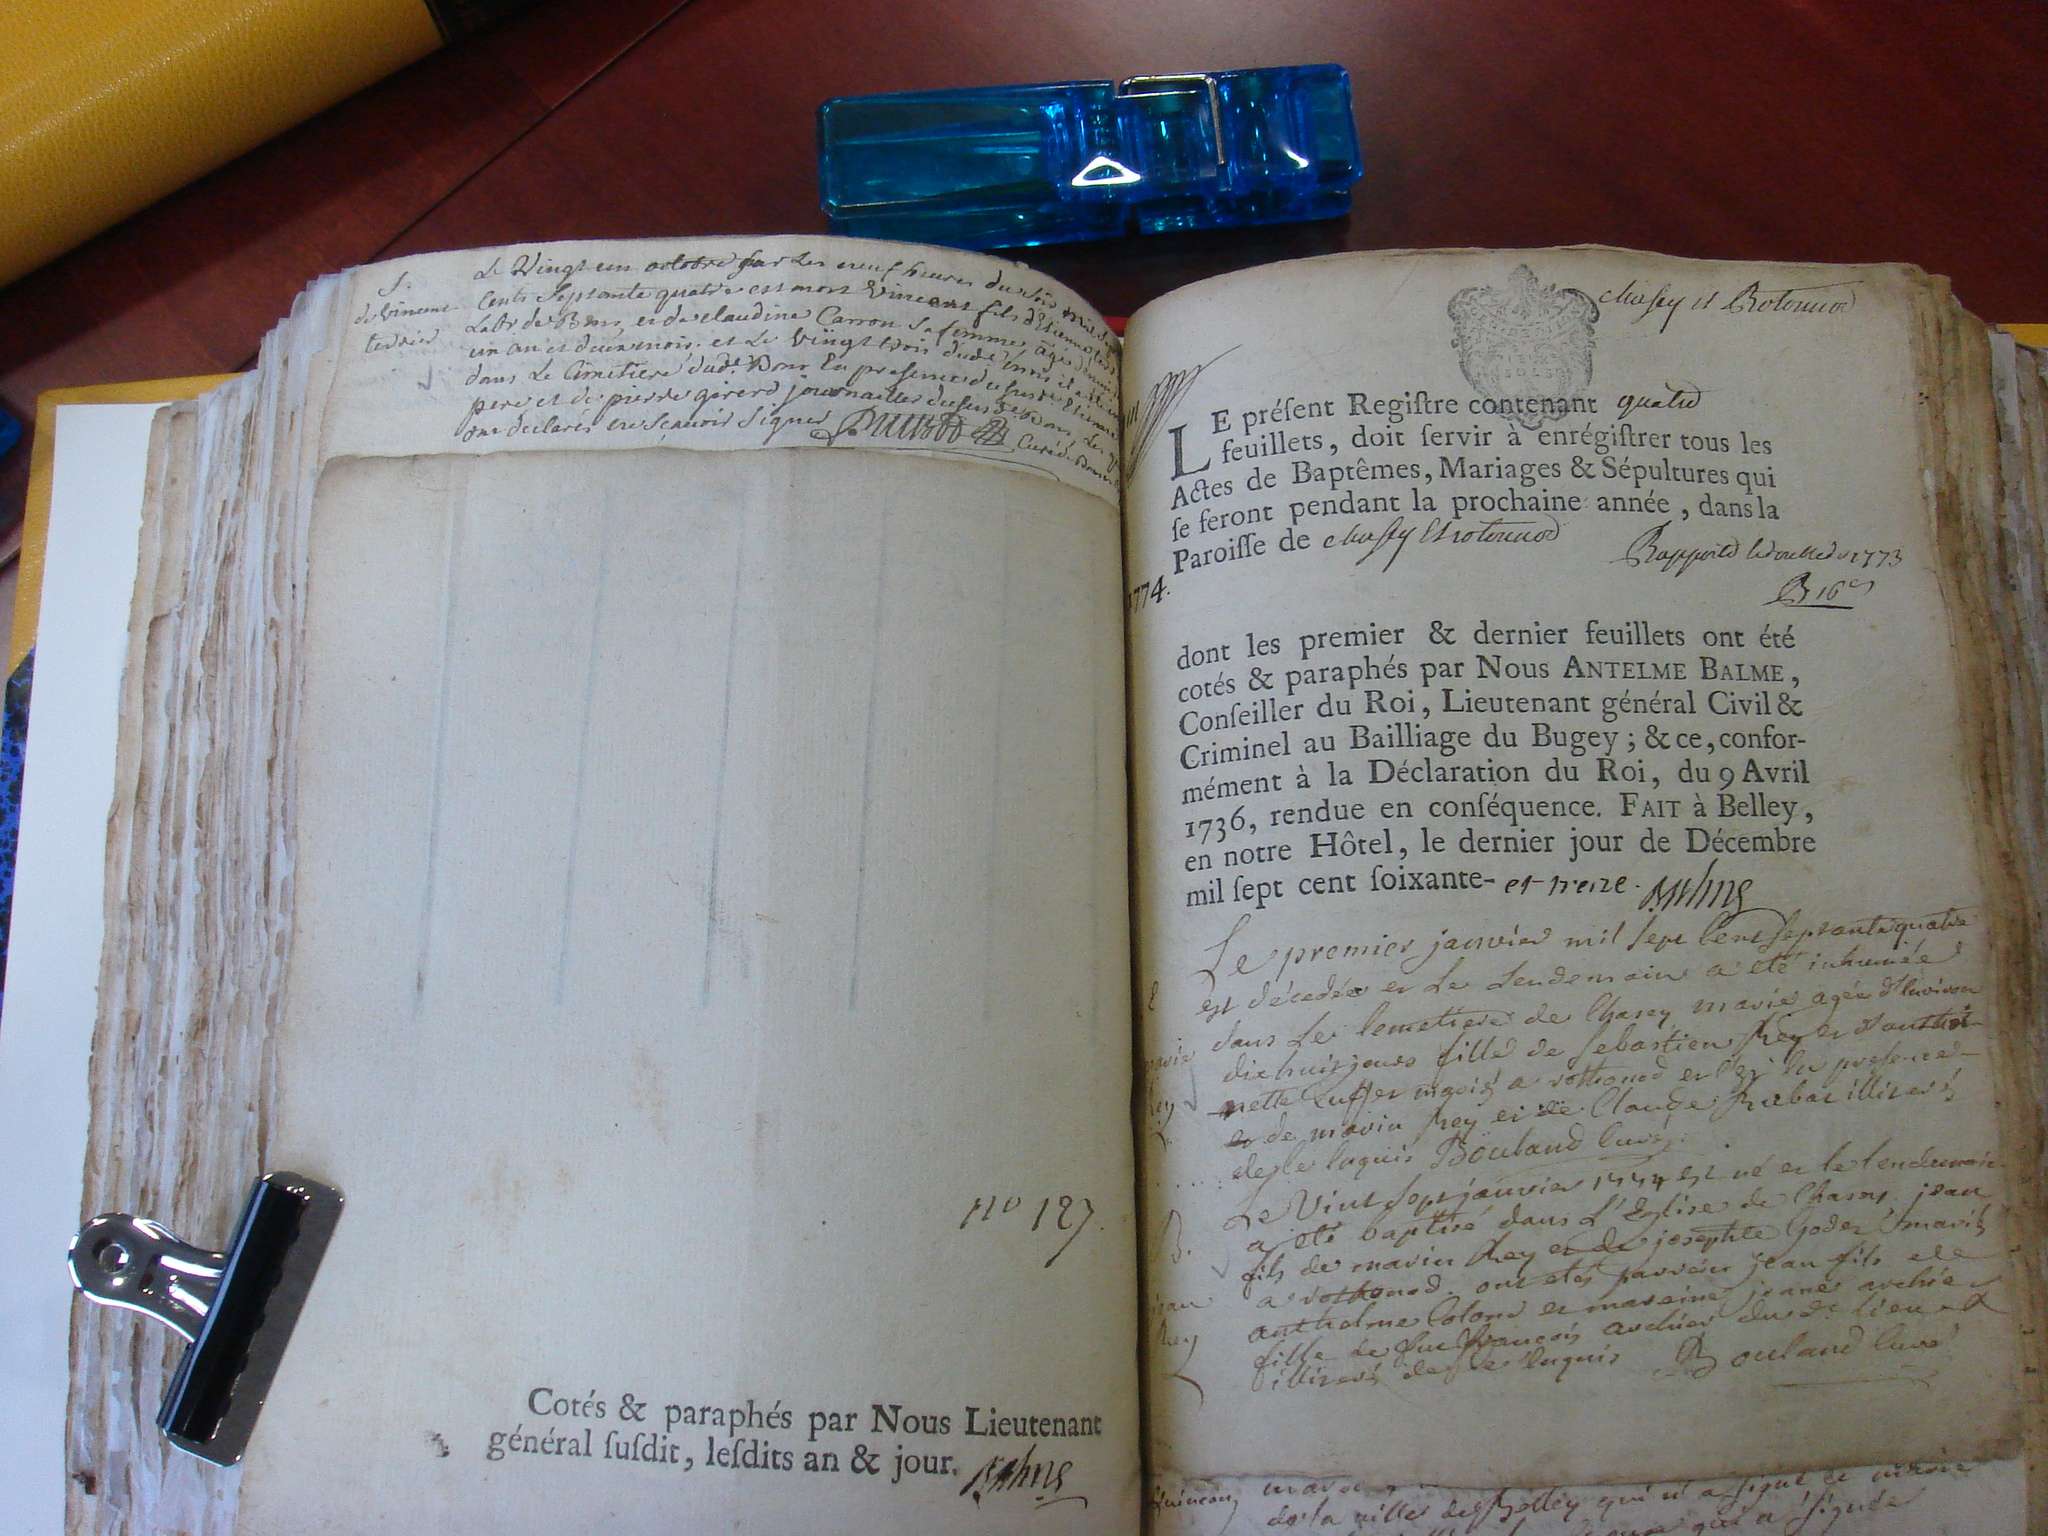 S.
de Vincent
terrier
Le Vingt un octobre sur Les neuf heures du soir mil sept
Cents Septante quatre est mort Vincent fils d'Etienne
Labr de Bons, et de claudine Carron Sa femme, âgé d'environ
un an et deux mois. et Le Vingt trois dudt mois il a été
dans Le Cimetiere dudt. Bons En presence dudt Etienne
pere et de pierre girerd journallier dudt Bons, Les
ont declarés ne sçavoir signer
Curé de Bons
no 127.
Cotés & paraphés par Nous Lieutenant
général ſuſdit, leſdits an & jour. Balme
chasey et Rotonnod
LE préſent Regiſtre contenant quatre
feuillets, doit ſervir à enrégiſtrer tous les
Actes de Baptêmes, Mariages & Sépultures qui
ſe feront pendant la prochaine année, dans la
Paroiſſe de chasey & rotonnod
1773
1774.
B 16
dont les premier & dernier feuillets ont été
cotés & paraphés par Nous ANTELME BALME,
Conſeiller du Roi, Lieutenant général Civil &
Criminel au Bailliage du Bugey ; & ce, confor-
mément à la Déclaration du Roi, du 9 Avril
1736, rendue en conſéquence. FAIT à Belley,
en notre Hôtel, le dernier jour de Décembre
mil ſept cent ſoixante- et treize. Balme
Le premier janvier mil sept cent septante quatre
est décedée et Le Lendemain a eté inhumée
dans Le Cemetiere de Chasey marie agée d'environ
dix huit jours fille de sebastien Rey et d'anthel-
mette Cuffet a rothonod et en presence
de marin Rey et de Claude illiterés
de ce enquis Bouland Curé.
marie
Rey
Le Vint sept janvier 1774 est né et le lendemain
a eté baptisé dans L'Eglise de Chasey jean
fils de marin Rey et de josephte Godet mariés
a rothonod. ont etés parrein jean fils de
anthelme Coton et mareine jeane
fille de feu françois du dt Lieu
illiterés de ce enquis Bouland Curé
B.
jean
Rey
de la ville de Belley qui n'a signé
qui a signé